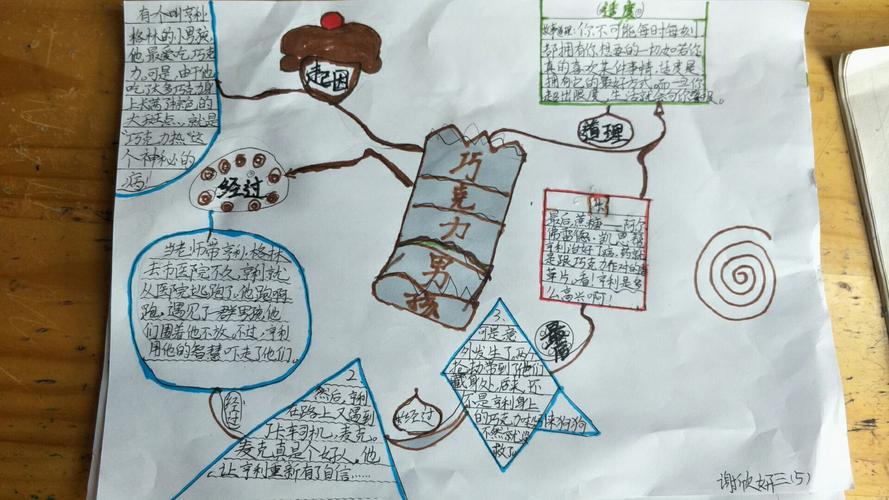 有个叫亨利
格林的小男孩,
他最爱吃巧克
力。可是,由于他
吃了太多巧克力,身
上长满了棕色的
大斑点,就是
"巧克力热"这
个神秘的
病!
起因
巧克力男孩
适度
你不可能每时每刻
都拥有你想要的一切。如若你
真的喜欢某件事情,适度是
拥有它的最好方式。而一旦你
超出限度,生活就会向你警报。
道理
经过
当老师带亨利·格林
去市医院不久,亨利就
从医院逃跑了。他跑啊
跑。遇见了一群男孩,他
们围着他不放。不过,亨利
用他的智慧吓走了他们。
经过
2.
然后,亨利
在路上又遇到
了卡车司机,麦克。
麦克真是个好人。他
让亨利重新有了自信……
经过
3.
可是意
外发生了,两个
抢劫带到了他们
藏身处。后来,还
不是亨利身上
的巧克力味
不然就没
救了。
最后
亨利治好了病。药就
是跟巧克力作对的香
草片。看!亨利是多
么高兴啊!
谢欣妤三(5)